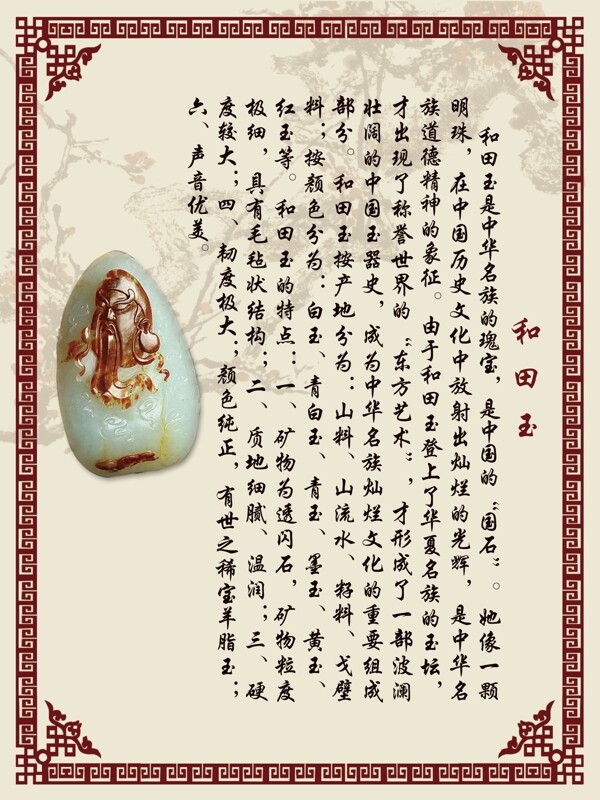 和田玉
和田玉是中华名族的瑰宝，是中国的“国石”。她像一颗
明珠，在中国历史文化中放射出灿烂的光辉，是中华名
族道德精神的象征。由于和田玉登上了华夏名族的玉坛，
才出现了称誉世界的“东方艺术”，才形成了一部波澜
壮阔的中国玉器史，成为中华名族灿烂文化的重要组成
部分。和田玉按产地分为：山料、山流水、籽料、戈壁
料；按颜色分为：白玉、青白玉、青玉、墨玉、黄玉、
红玉等。和田玉的特点：一、矿物为透闪石，矿物粒度
极细，具有毛毡状结构；二、质地细腻、温润；三、硬
度较大；四、韧度极大；颜色纯正，有世之稀宝羊脂玉；
六、声音优美。